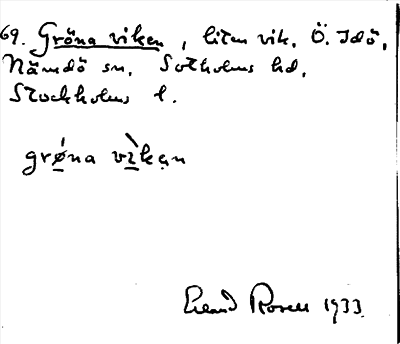 69. Gröna viken, liten vik, Ö. Idö,
Nämdö sn. Sotholms hd,
Stockholms l.
grǿna vìkən
Erland Rosell 1933.